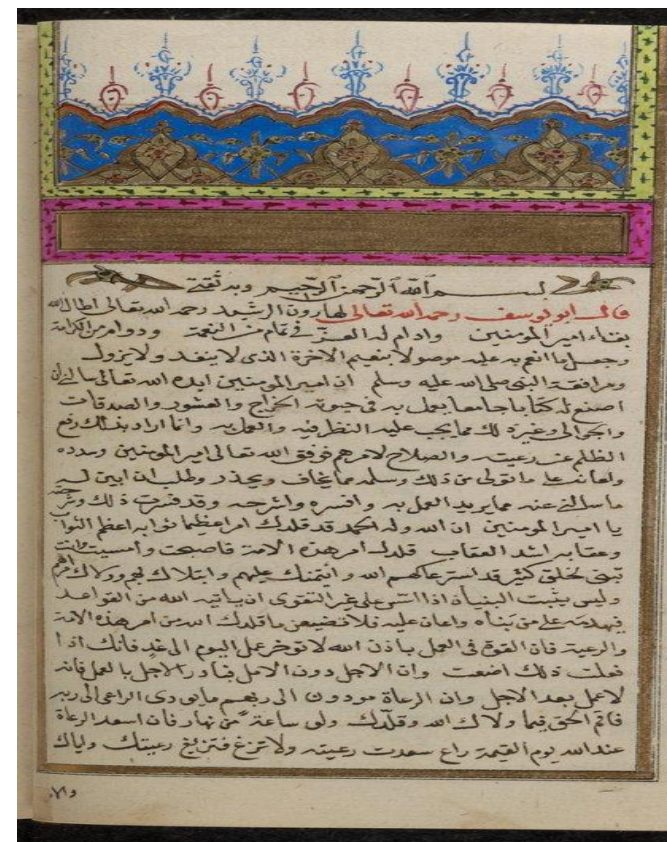 بسم الله الرحمن الرحيم وبه ثقتي
قال ابو يوسف رحمه الله تعالى لهارون الرشيد رحمه الله تعالى اطال الله
بقاء امير المومنين وادام له العز في تمام من النعمة ودوام من الكرامة
وجعل ما انعم به عليه موصولا بنعيم الاخرة الذى لا ينفد ولا يزول
ومرافقة النبى صلى الله عليه وسلم ان امير المومنين ايده الله تعالى سالنى ان
اصنع له كتابا جامعا يعمل به فى جباية الخراج والعشور والصدقات
والجوالى وغير ذلك مما يجب عليه النظر فيه والعمل به وانما اراد بذلك رفع
الظلم عن رعيته والصلاح لامرهم فوفق الله تعالى امير المومنين وسدده
واعانه على ما تولى من ذلك وسلمه مما يخاف ويحذر وطلب ان ابين له
ما سالنى عنه مما يريد العمل به وافسره واشرحه وقد فسرت ذلك وشرحته
يا امير المومنين ان الله وله الحمد قد قلدك امرا عظيما ثوابه اعظم الثواب
وعقابه اشد العقاب قلدك امر هذه الامة فاصبحت وامسيت وانت
تبنى لخلق كثير قد استرعاكهم الله وائتمنك عليهم وابتلاك بهم وولاك امرهم
وليس يثبت البنيان اذا اسس على غير التقوى ان ياتيه الله من القواعد
فيهدمه على من بناه واعان عليه فلا تضيعن ما قلدك الله من امر هذه الامة
والرعية فان القوة فى العمل باذن الله لا توخر عمل اليوم الى غد فانك اذا
فعلت ذلك اضعت وان الاجل دون الامل فبادر الاجل بالعمل فانه
لا عمل بعد الاجل وان الرعاة مودون الى ربهم ما يودى الراعى الى ربه
فاقم الحق فيما ولاك الله وقلدك ولو ساعة من نهار فان اسعد الرعاة
عند الله يوم القيمة راع سعدت رعيته ولا تزغ فتزيغ رعيتك واياك
والا